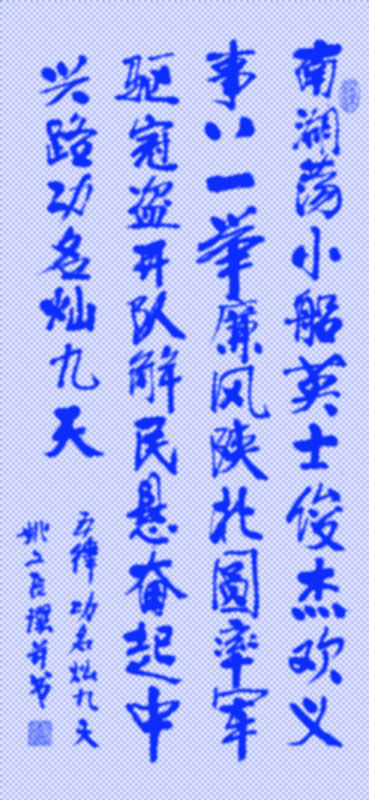 南湖荡小船英士俊杰欢义
事八一举廉风陕北圖率军
驱寇盗队解民悬奋起中
兴路功名灿九天
五律功名灿九天
姚撰并书